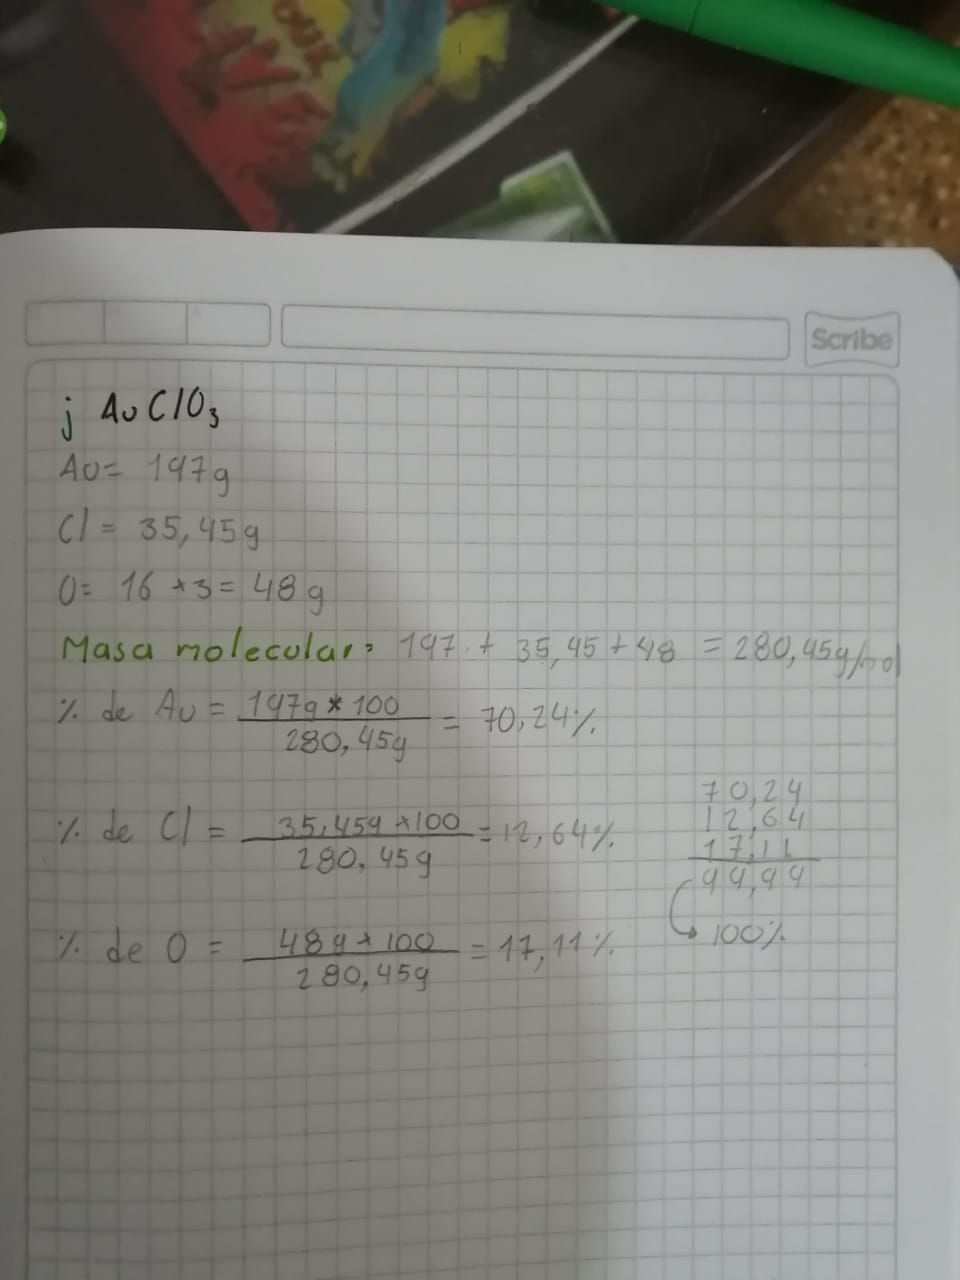 Scribe
j AuClO₃
Au= 197g
Cl = 35,45g
O= 16 *3= 48 g
Masa molecular: 197 + 35,45+48 = 280,45g/mol
% de Au = 197g * 100 / 280,45g = 70,24%
% de Cl = 35,45g *100 / 280,45g = 12,64%
% de O = 48g * 100 / 280,45g = 17,11%
70,24
12,64
17,11
99,99
100%